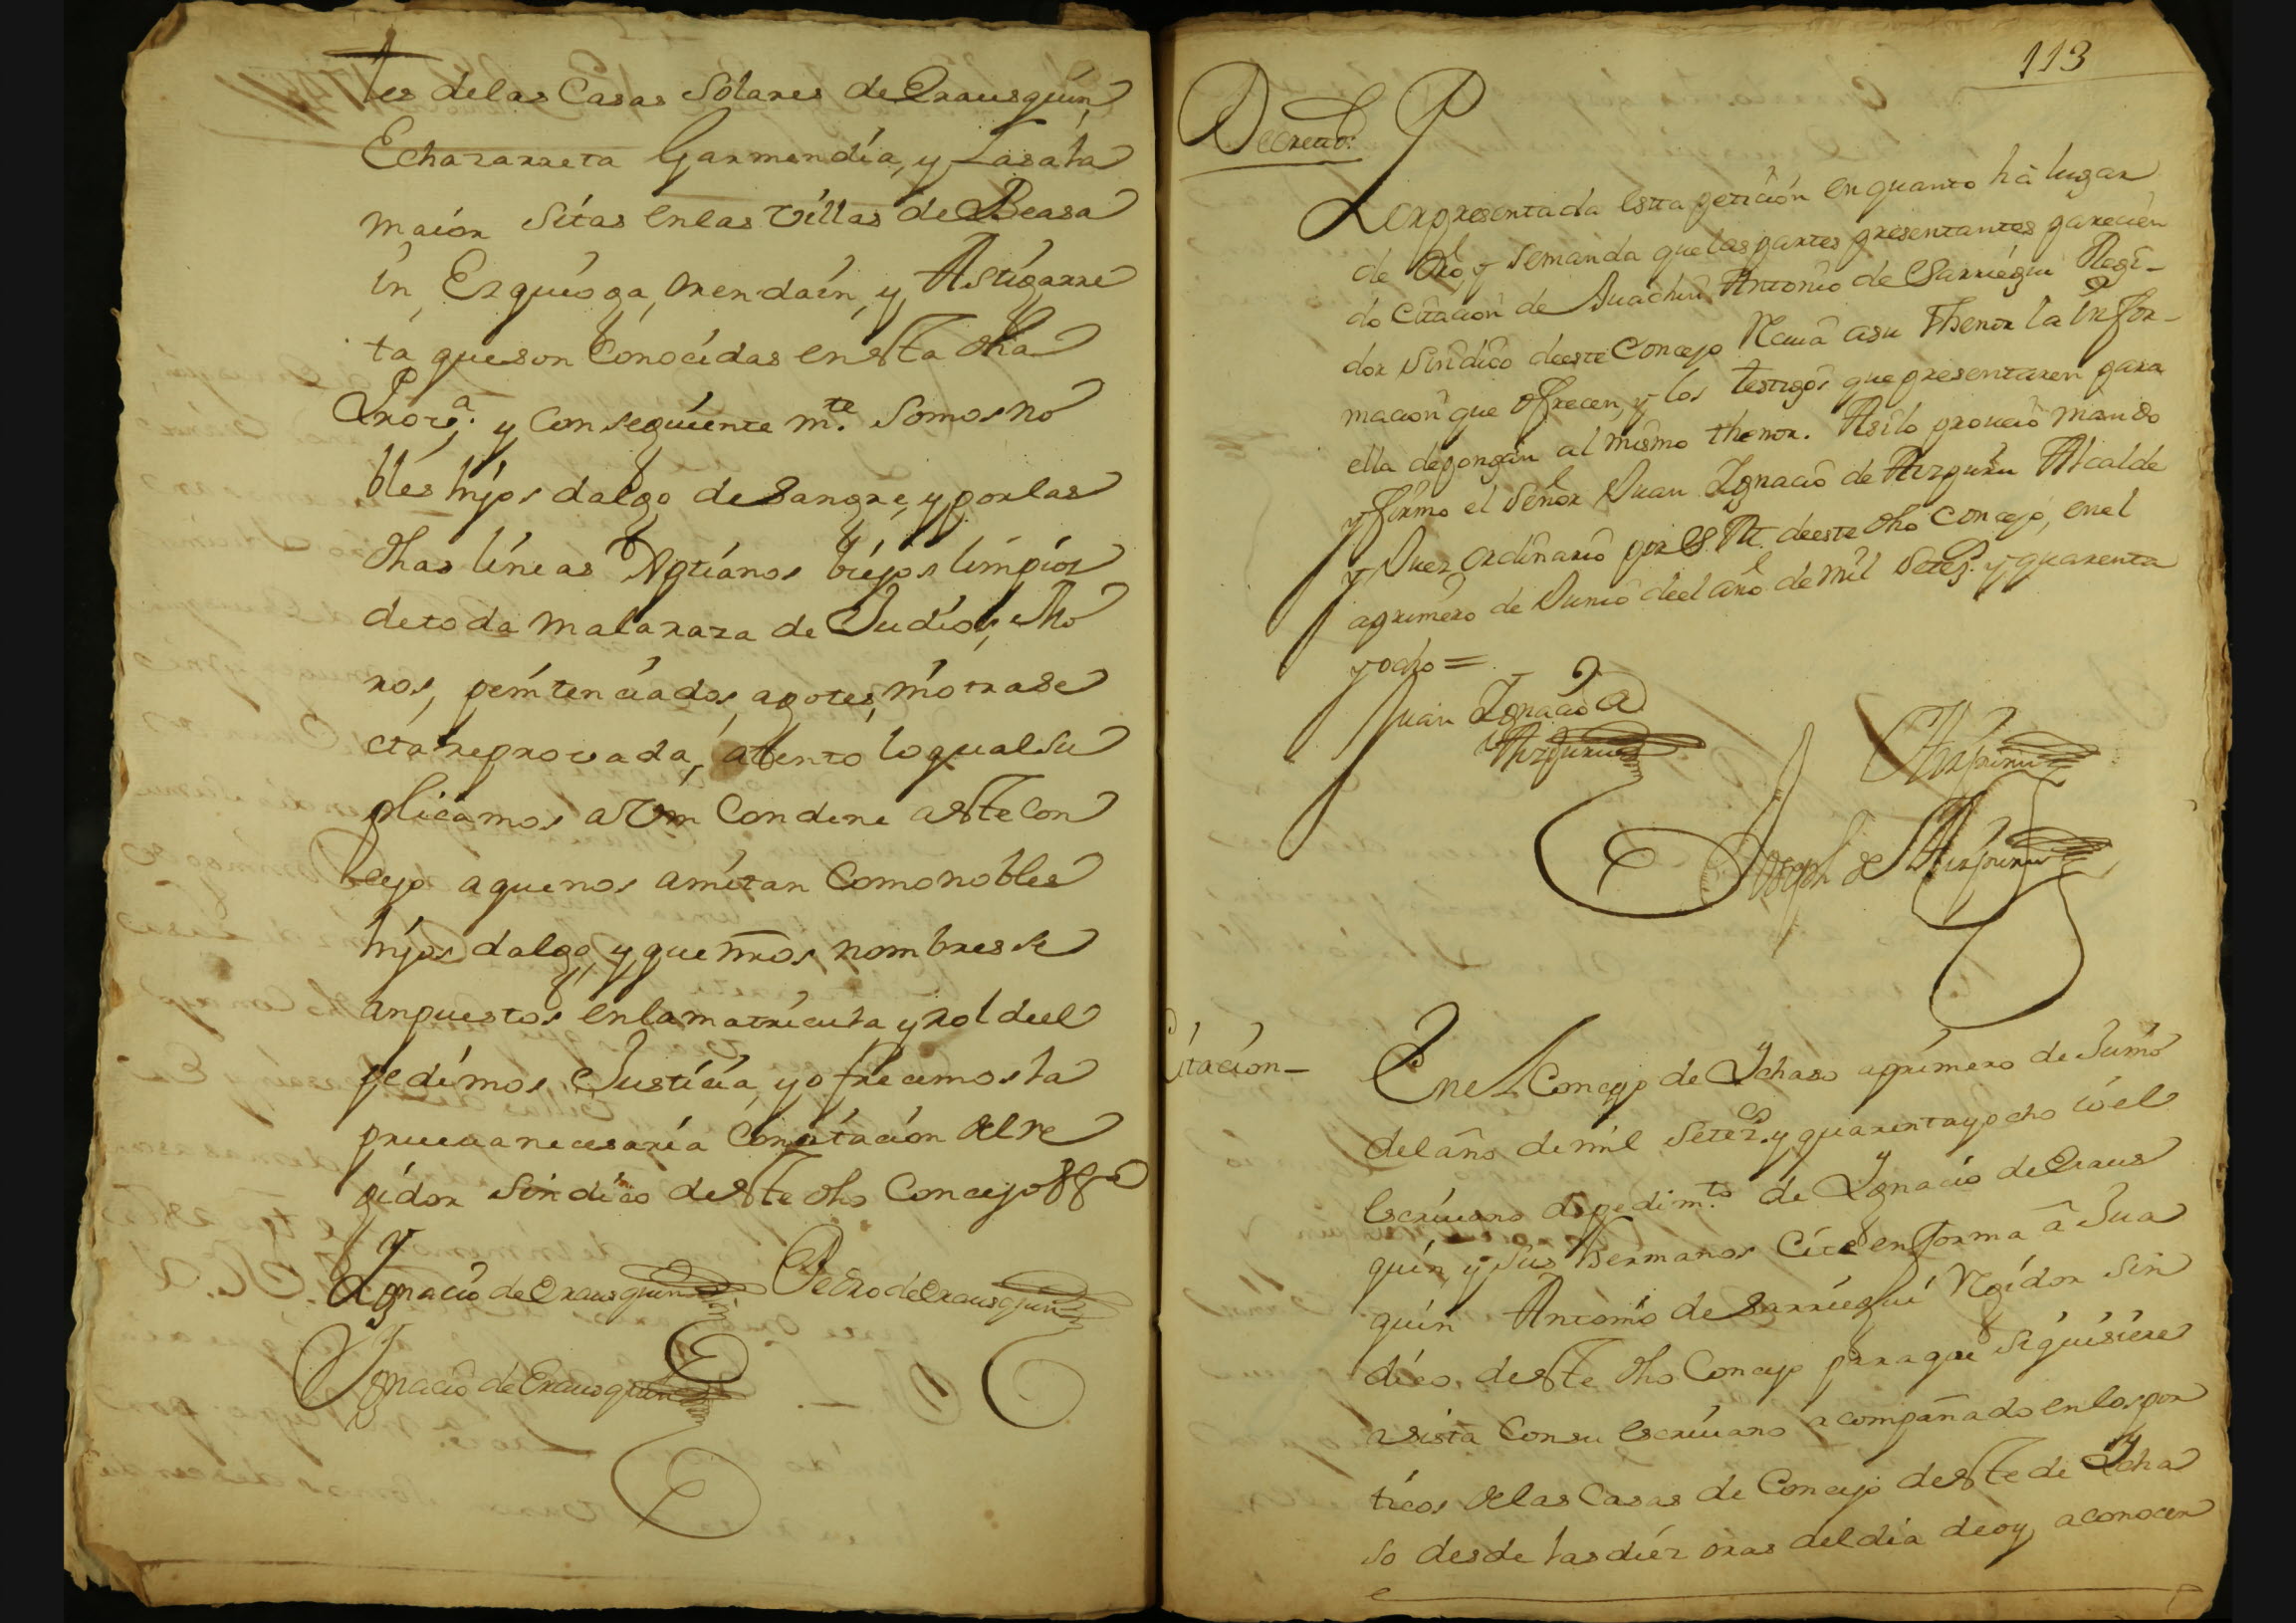 tes delas Casas Solares de Erausquin,
Echazarreta Garmendia, y Lasata
maior Sitas enlas Villas de Beasa
in, Ezquioga, Orendain, y Astigarre
ta, queson Conocidas en esta dha
Prov.ª y Conseguiente m.te Somos no
bles hijos dalgo de Sangre, y por las
dhas lineas Xptianos biejos limpios
de toda mala raza de Judios, Mo
ros, penitenciados, agotes, ni otra se
cta reprovada, atento lo qual Su
plicamos a Vm Condene a este Con
cejo a que nos amitan Como nobles
hijos dalgo, y que nros nombres se
an puestos en la matricula y rol deel
pedimos Justicia, y ofrecemos la
prueva necesaria Con citacion del re
gidor Sindico de este dho Concejo &&a
Ygnacio de Erausquin Pedro de Erausquin
Ygnacio de Erausquin
113
Decreto:
Por presentada esta peticion en quanto hà lugar
de dro, y Se manda que las partes presentantes parecien
do Citacion de Juachin Antonio de Sarriegui Regi-
dor Sindico de este Concejo Reciva a su thenor la infor-
macion que ofrecen, y los testigos que presentaren para
ella depongan al mismo thenor. Asi lo proveiò mandò
y firmo el Señor Juan Ygnacio de Aizpuru Alcalde
y Juez ordinario por S. M. de este dho Concejo, en el
a primero de Junio de el año de mil Setez.s y quarenta
y ocho =
Juan Ygnacio de
Aizpuru
Joseph de Aizpuru
Citacion-
En el Concejo de Ychaso a primero de Junio
del año de mil Setez.os y quarenta y ocho io el
escrivano de pedim.to de Ygnacio de Eraus
quin, y Sus hermanos Cite en forma à Jua
quin Antonio de Sarriegui Regidor Sin
dico de este dho Concejo para que Si quisiere
asista Con su escrivano acompañado en los por
ticos de las Casas de Concejo de este de Ycha
so desde las diez oras del dia de oy, a conocer